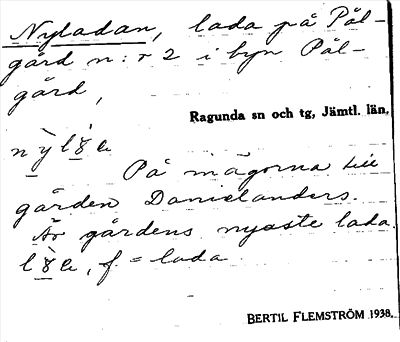 Nyladan, lada på Pål-
gård n:r 2 i byn Pål-
gård,
Ragunda sn och tg, Jämtl. län.
På mågorna till
gården Danielanders.
Är gårdens nyaste lada.
f = lada
BERTIL FLEMSTRÖM 1938.